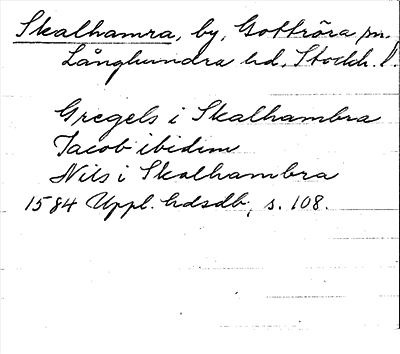 Skalhamra, by, Gottröra sn.
Långhundra hd. Stockh. l.
Gregels i Skalhambra
Jacob ibidem
Nils i Skalhambra
1584 Uppl. hdsdb, s. 108.